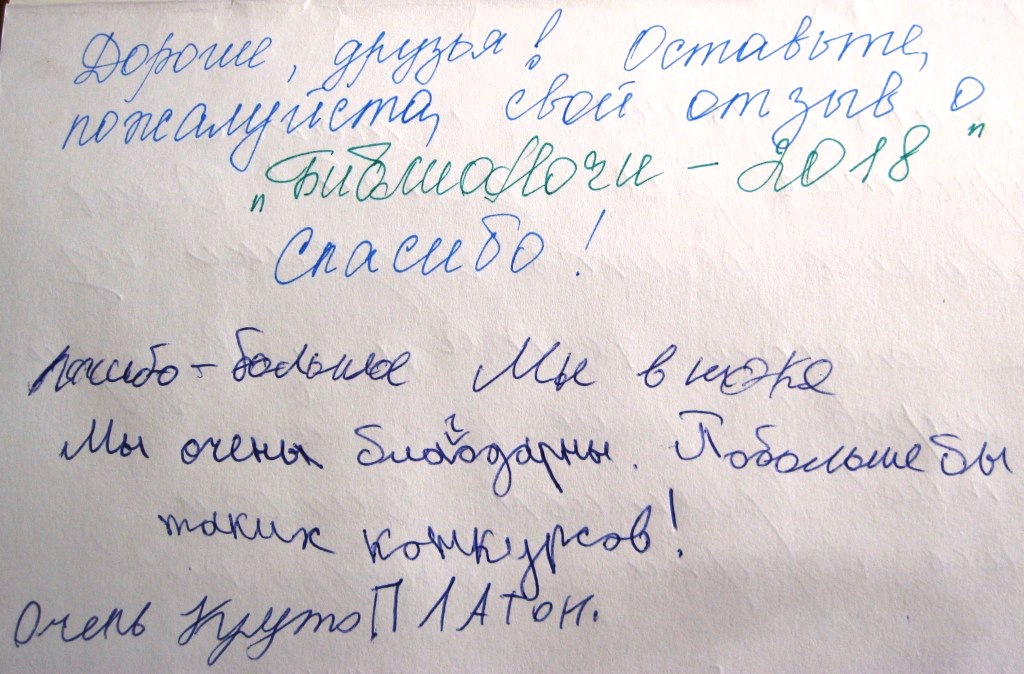 Дорогие, друзья! Оставьте,
пожалуйста, свой отзыв о
„БиблиоНочи – 2018"
Спасибо!
пасибо – большое Мы в шоке
Мы очень благодарны. Побольше бы
таких конкурсов!
Очень Круто! ПЛАТОН.